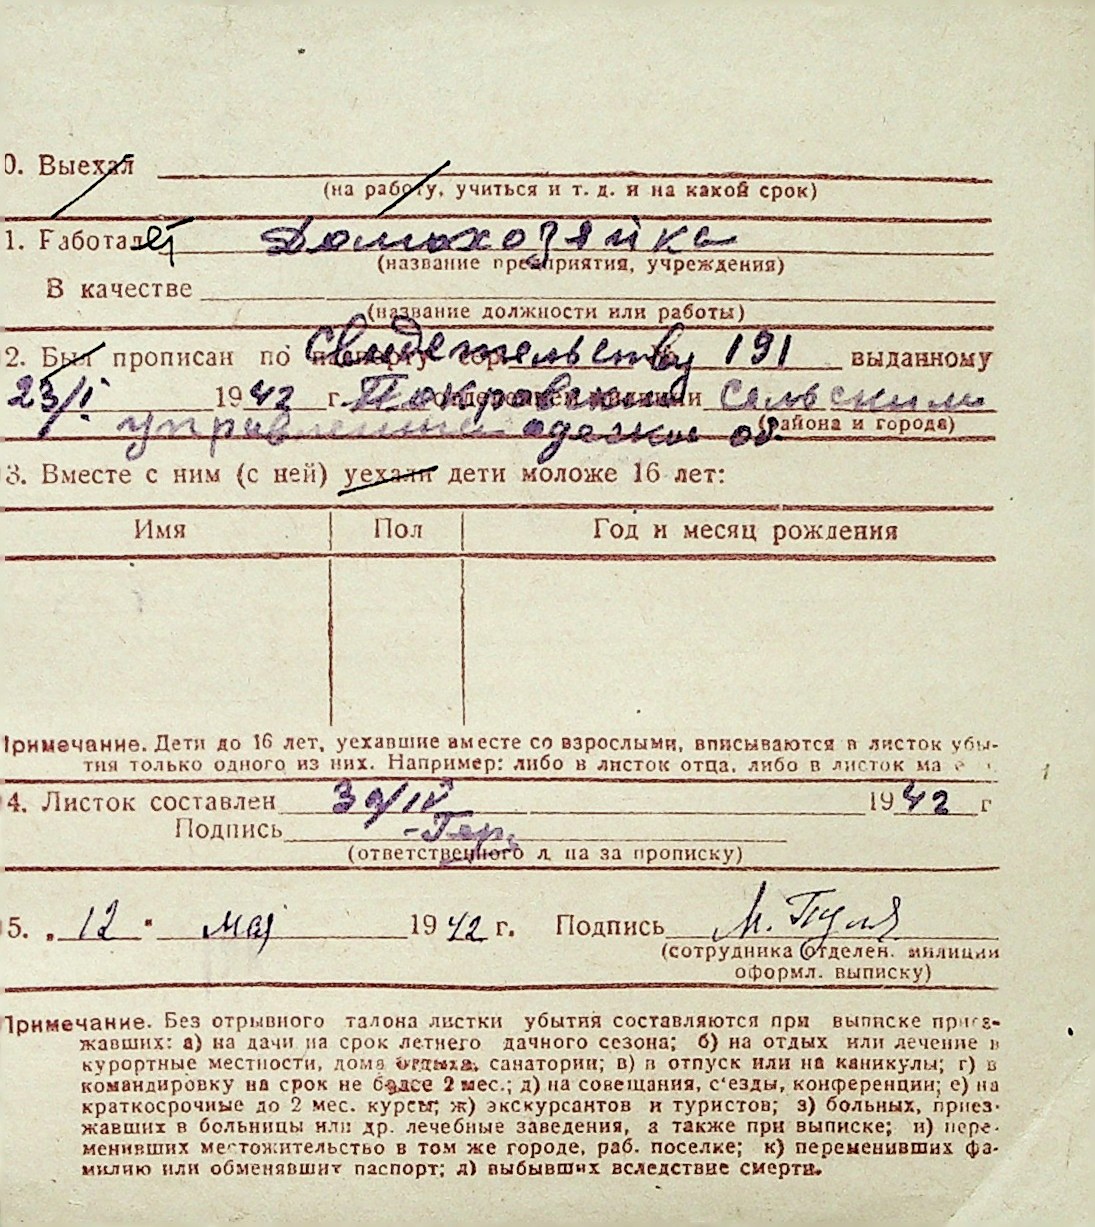 0. Выехал
(на работу, учиться и т. д. и на какой срок)
1. Работает Домохозяйка
(название предприятия, учреждения)
В качестве
(название должности или работы)
2. Был прописан по Свидетельству 191 выданному
23/I 1942 г. Покровским сельским
управлением одеской об.
(района и города)
3. Вместе с ним (с ней) уехали дети моложе 16 лет:
Имя Пол Год и месяц рождения
Примечание. Дети до 16 лет, уехавшие вместе со взрослыми, вписываются в листок убы-
тия только одного из них. Например: либо в листок отца, либо в листок ма
4. Листок составлен 30/IV 1942 г
Подпись
(ответственного л на за прописку)
5. „12" май 1942 г. Подпись М. Пуля
(сотрудника отделен. милиции
оформл. выписку)
Примечание. Без отрывного талона листки убытия составляются при выписке приез-
жавших: а) на дачи на срок летнего дачного сезона; б) на отдых или лечение в
курортные местности, дома отдыха, санатории; в) в отпуск или на каникулы; г) в
командировку на срок не более 2 мес.; д) на совещания, с'езды, конференции; е) на
краткосрочные до 2 мес. курсы; ж) экскурсантов и туристов; з) больных, приез-
жавших в больницы или др. лечебные заведения, а также при выписке; и) пере-
менивших местожительство в том же городе, раб. поселке; к) переменивших фа-
милию или обменявших паспорт; л) выбывших вследствие смерти.